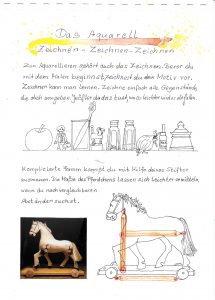 Das Aquarell
Zeichnen - Zeichnen - Zeichnen
Zum Aquarellieren gehört auch das Zeichnen. Bevor du
mit dem Malen beginnst zeichnest du dein Motiv vor.
Zeichnen kann man lernen. Zeichne einfach alle Gegenstände,
die dich umgeben. Je öfter du das tust, umso leichter wird es dir fallen.
Komplizierte Formen kannst du mit Hilfe deines Stiftes
ausmessen. Die Maße des Pferdchens lassen sich leichter ermitteln,
wenn du nach vergleichbaren
Abständen suchst.